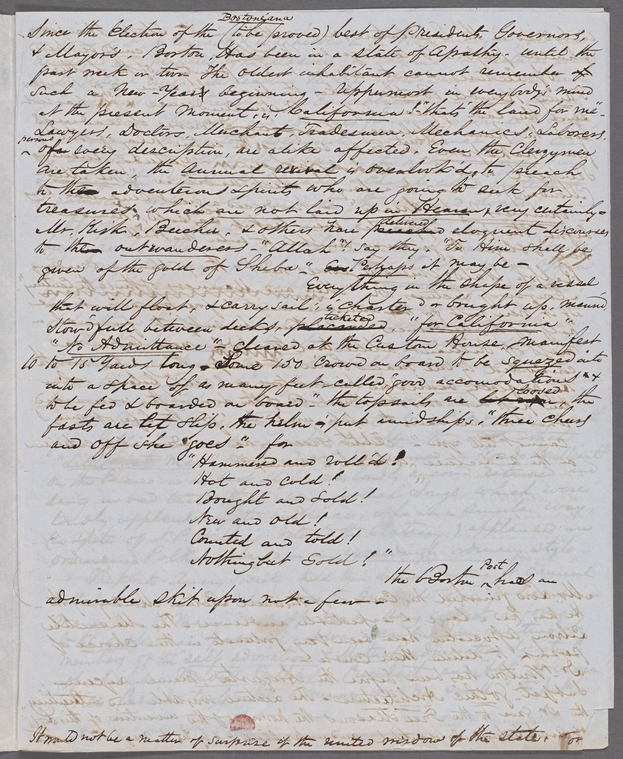 Bostoniana
Since the Election of the (to be proved) best of Presidents, Governors,
& Mayors, Boston, Has been in a state of Apathy. until the
past week or two The oldest inhabitant cannot remember of
Such a New Year beginning - Uppermost in everybody's mind
at the present moment, is, California! "that's the land for me" -
Lawyers, Doctors, Merchants, Tradesmen, Mechanics, Laborers.
persons
of every description, are alike affected. Even the Clergymen
are taken, the Annual revival is overlooked, to preach
to the adventurous spirits who are going to seek for
treasures, which are not laid up in Heaven, very certainly -
Mr. Kirk, Beecher, & others have delivered eloquent discourses,
to the outwanderers - "Allah"! Say they, "To Him shall be
given of the gold of Sheba" - Perhaps it may be -
Everything in the shape of a vessel
that will float, & carry sail, is Charter'd or bought up. mann'd,
Stow'd full between decks, placarded ticketed "for California"
"No Admittance" - cleared at the Custom House, manifest
10 to 15 Yards long - Some 150 crowd on board to be squezed into
into a space of as many feet - called "good accomodations" &
to be fed & boarded on board" - the topsails are loosed, the
fasts are let slip, the helm is put amidships, "three cheers
and off she "goes" for
"Hammered and roll'd!
Hot and cold!
Bought and Sold!
New and old!
Counted and told!
Nothing but Gold!"
the Boston Post has an
admirable skit upon not a few -
It would not be a matter of surprise if the united wisdom of the state, or